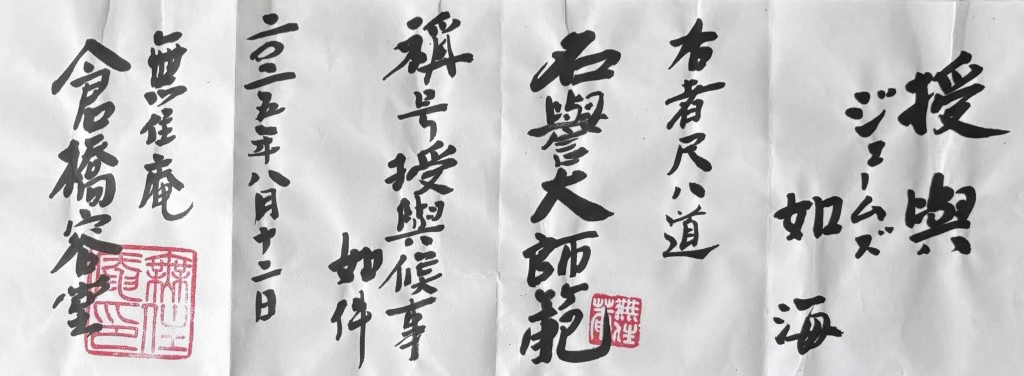 授與
ジェームズ
如海
右者尺八道
名譽大師範
無住菴
稱号授與候事
如件
二〇二五年八月十二日
無住庵
倉橋容堂
無住菴印